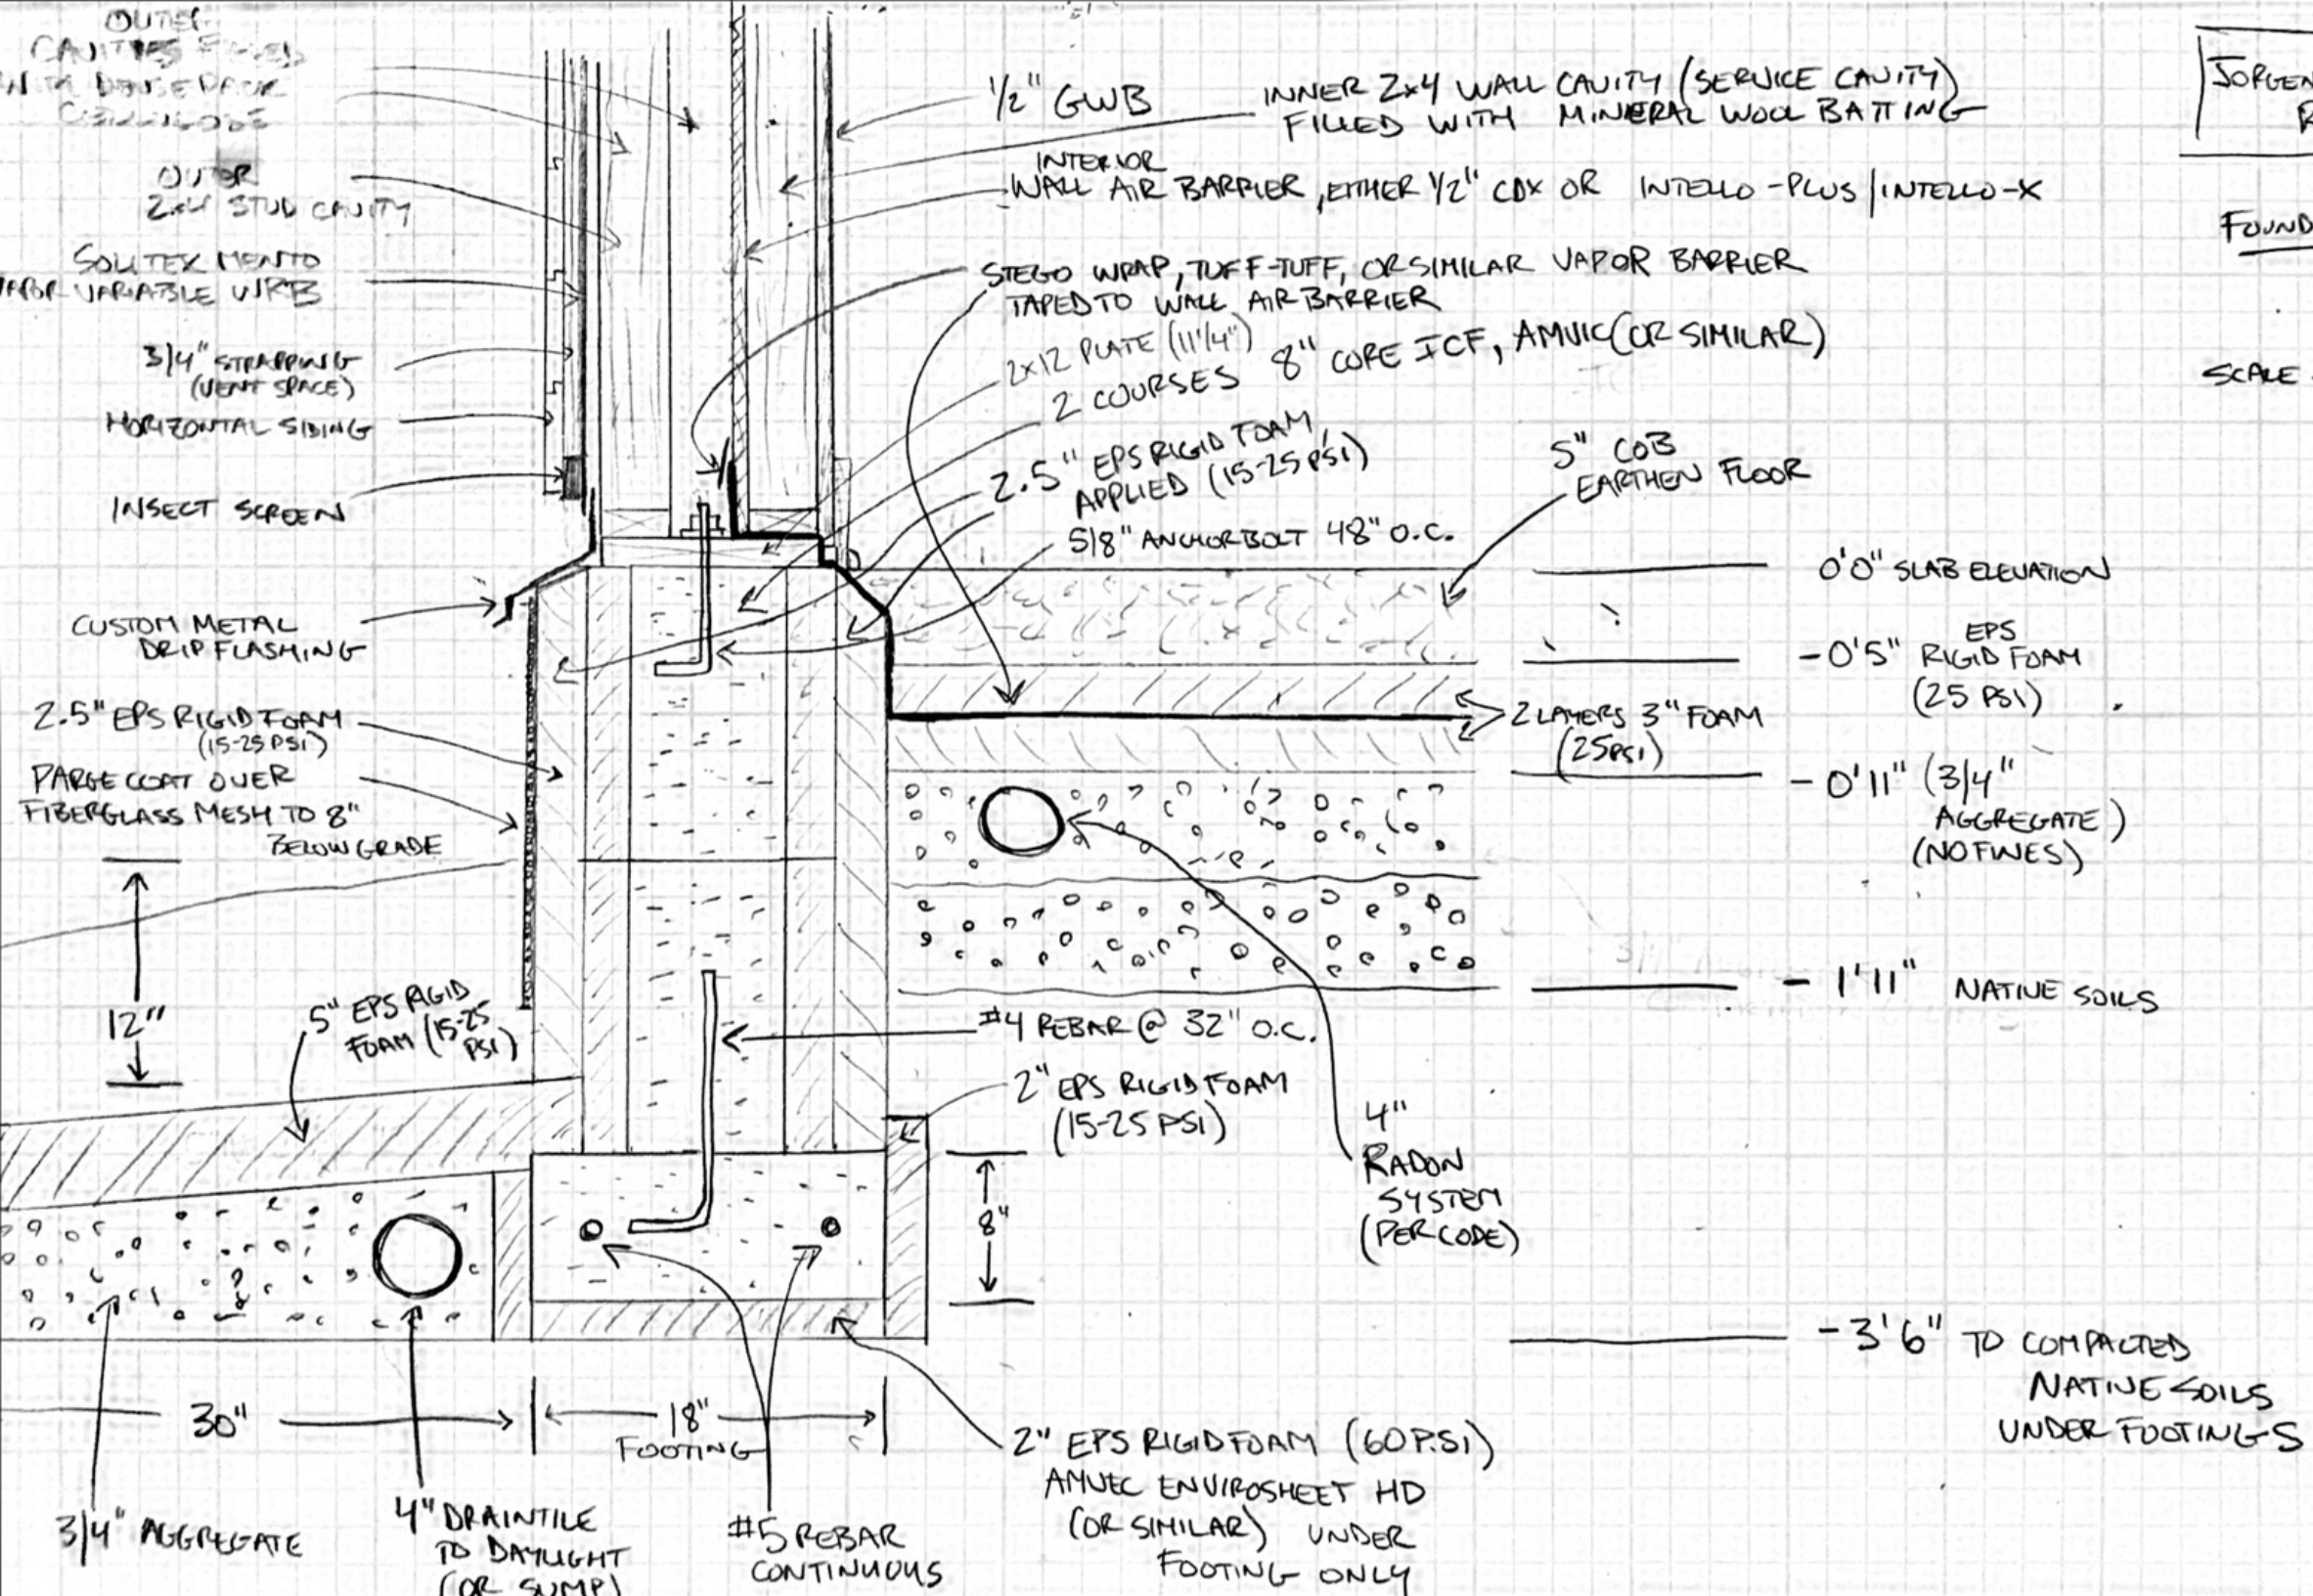 OUTER
CAVITIES FILLED
DENSE PACK
CELLULOSE
OUTER
2x4 STUD CAVITY
SOLITEX MENTO
VARIABLE WRB
3/4" STRAPPING
(VENT SPACE)
HORIZONTAL SIDING
INSECT SCREEN
CUSTOM METAL
DRIP FLASHING
2.5" EPS RIGID FOAM
(15-25 PSI)
PARGE COAT OVER
FIBERGLASS MESH TO 8"
BELOW GRADE
12"
5" EPS RIGID
FOAM (15-25
PSI)
30"
3/4" AGGREGATE
4" DRAINTILE
TO DAYLIGHT
(OR SUMP)
18"
FOOTING
#5 REBAR
CONTINUOUS
1/2" GWB
INNER 2x4 WALL CAVITY (SERVICE CAVITY)
FILLED WITH MINERAL WOOL BATTING
INTERIOR
WALL AIR BARRIER, EITHER 1/2" CDX OR INTELLO-PLUS/INTELLO-X
STEGO WRAP, TUFF-TUFF, OR SIMILAR VAPOR BARRIER
TAPED TO WALL AIR BARRIER
2x12 PLATE (11 1/4")
2 COURSES 8" CORE ICF, AMVIC (OR SIMILAR)
2.5" EPS RIGID FOAM,
APPLIED (15-25 PSI)
5/8" ANCHOR BOLT 48" O.C.
5" COB
EARTHEN FLOOR
0'0" SLAB ELEVATION
-0'5" EPS
RIGID FOAM
(25 PSI)
2 LAYERS 3" FOAM
(25 PSI)
-0'11" (3/4"
AGGREGATE)
(NO FINES)
-1'11" NATIVE SOILS
#4 REBAR @ 32" O.C.
2" EPS RIGID FOAM
(15-25 PSI)
8"
4"
RADON
SYSTEM
(PER CODE)
-3'6" TO COMPACTED
NATIVE SOILS
UNDER FOOTINGS
2" EPS RIGID FOAM (60 P.SI)
AMVEC ENVIROSHEET HD
(OR SIMILAR) UNDER
FOOTING ONLY
JORGEN
FOUND
SCALE